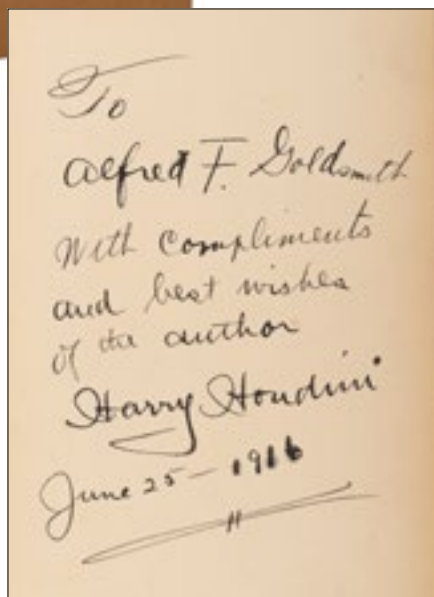 To
Alfred F. Goldsmith
With compliments
and best wishes
of the author
Harry Houdini
June 25 — 1916